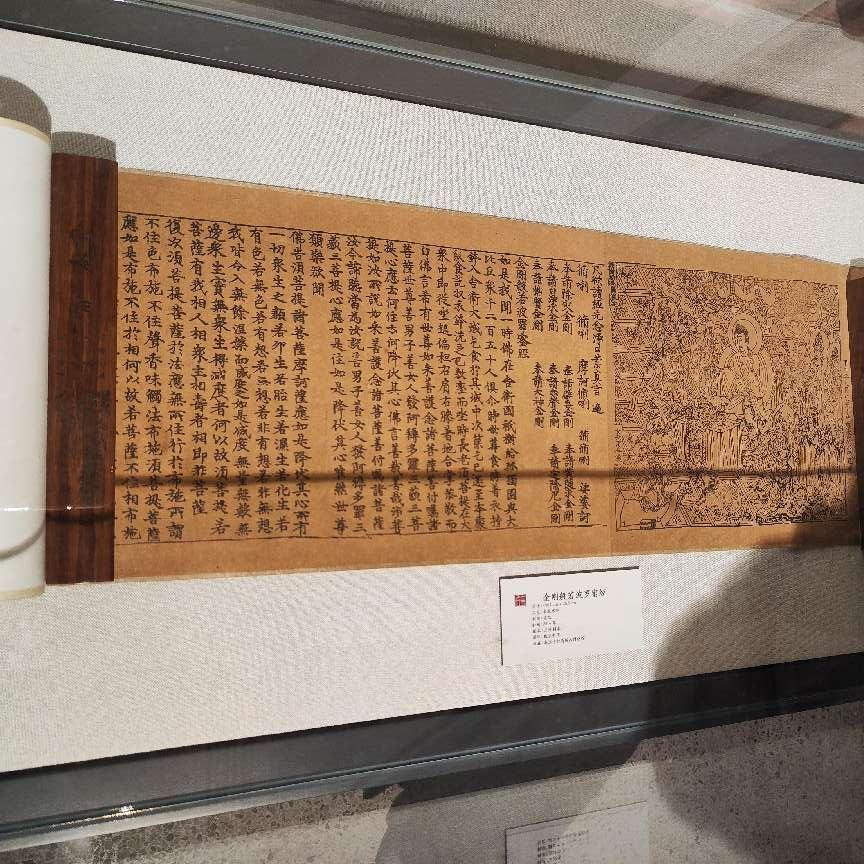 凡欲讀經先念淨口業真言一遍
脩唎 脩唎 摩訶脩唎 脩脩唎 娑婆訶
奉請除災金剛 奉請辟毒金剛 奉請黃隨求金剛
奉請白淨水金剛 奉請赤聲金剛 奉請定除厄金剛
奉請紫賢金剛 奉請大神金剛
金剛般若波羅蜜經
如是我聞一時佛在舍衛國祇樹給孤獨園與大
比丘眾千二百五十人俱尒時世尊食時著衣持
鉢入舍衛大城乞食於其城中次第乞已還至本處
飯食訖收衣鉢洗足已敷座而坐時長老須菩提在大
眾中即從座起偏袒右肩右膝著地合掌恭敬而
白佛言希有世尊如來善護念諸菩薩善付囑諸
菩薩世尊善男子善女人發阿耨多羅三藐三菩
提心應云何住云何降伏其心佛言善哉善哉須菩
提如汝所說如來善護念諸菩薩善付囑諸菩薩
汝今諦聽當為汝說善男子善女人發阿耨多羅三
藐三菩提心應如是住如是降伏其心唯然世尊
願樂欲聞
佛告須菩提諸菩薩摩訶薩應如是降伏其心所有
一切眾生之類若卵生若胎生若濕生若化生若
有色若無色若有想若無想若非有想若非無想
我皆令入無餘涅槃而滅度之如是滅度無量無數無
邊眾生實無眾生得滅度者何以故須菩提若
菩薩有我相人相眾生相壽者相即非菩薩
復次須菩提菩薩於法應無所住行於布施所謂
不住色布施不住聲香味觸法布施須菩提菩薩
應如是布施不住於相何以故若菩薩不住相布施
金剛般若波羅蜜經